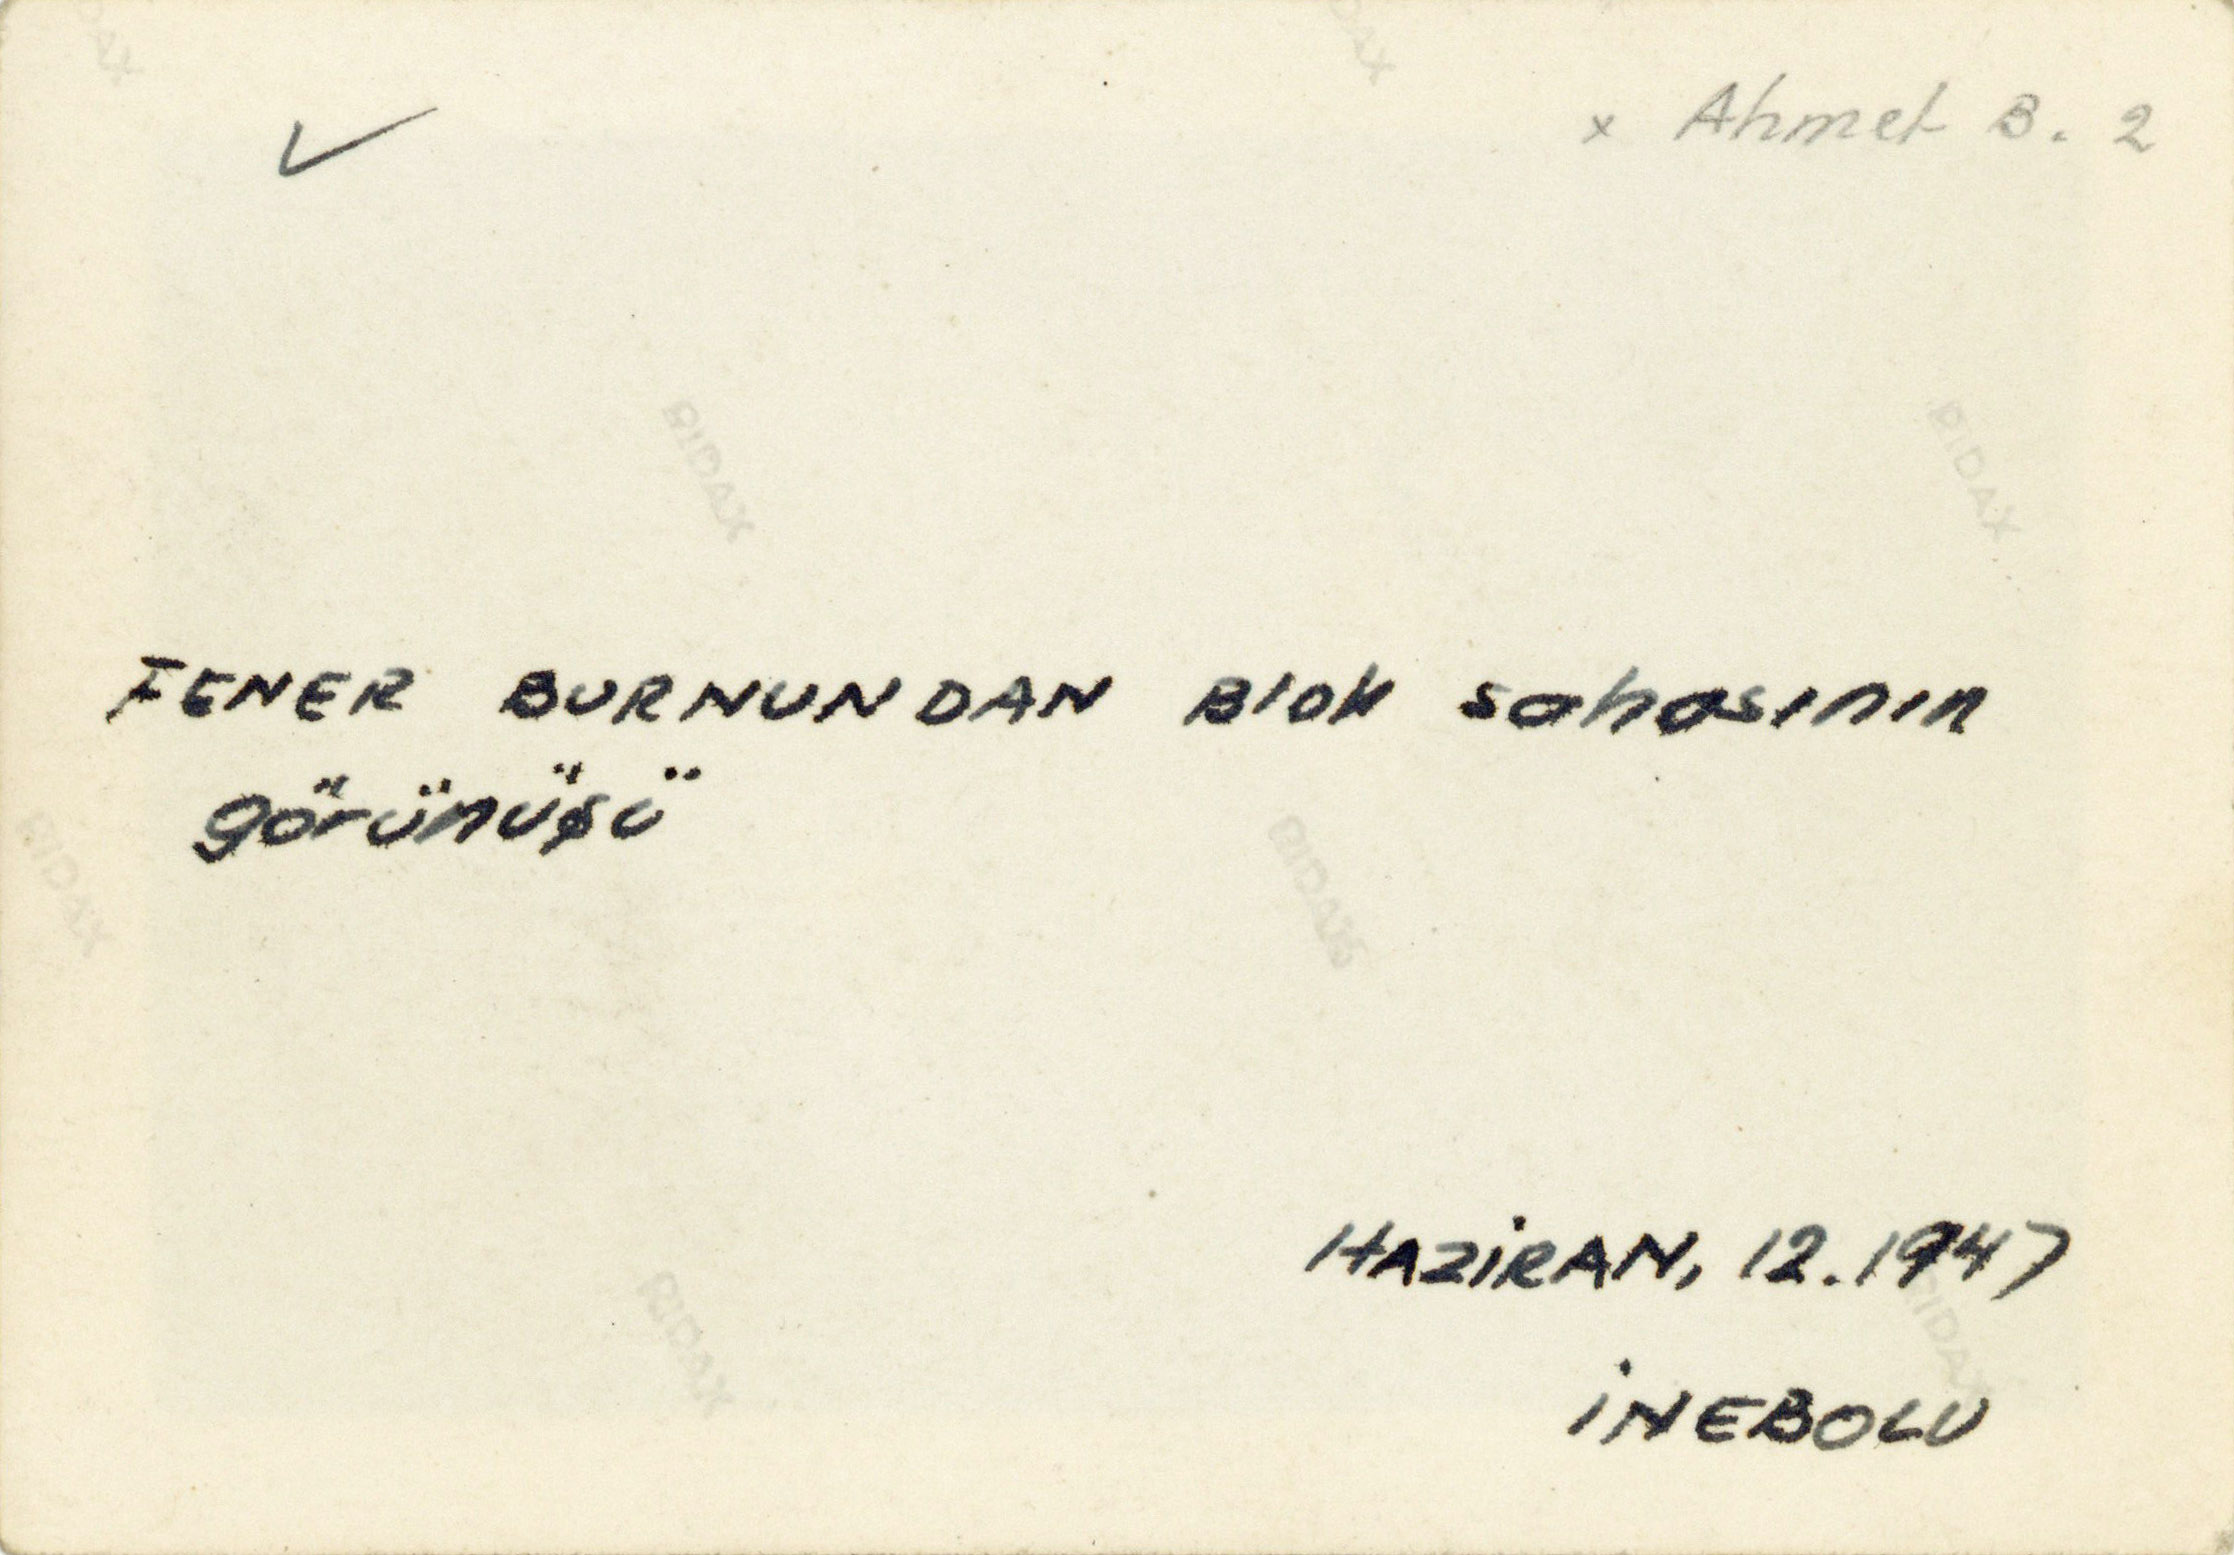 x Ahmet B. 2
FENER BURNUNDAN Blok sahasının
görünüşü
HAZİRAN, 12.1947
İNEBOLU
RIDAX
RIDAX
RIDAX
RIDAX
RIDAX
RIDAX